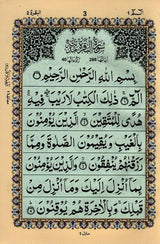 البقرة ٢
3
الۤمّۤ ١
بِسْمِ اللهِ الرَّحْمٰنِ الرَّحِيْمِ
الۤمّۤ ۚ ذٰلِكَ الْكِتٰبُ لَا رَيْبَ ۛ فِيْهِ ۛ
هُدًى لِّلْمُتَّقِيْنَ ۙ الَّذِيْنَ يُؤْمِنُوْنَ
بِالْغَيْبِ وَيُقِيْمُوْنَ الصَّلٰوةَ وَمِمَّا
رَزَقْنٰهُمْ يُنْفِقُوْنَ ۙ وَالَّذِيْنَ يُؤْمِنُوْنَ
بِمَآ اُنْزِلَ اِلَيْكَ وَمَآ اُنْزِلَ مِنْ
قَبْلِكَ ۚ وَبِالْاٰخِرَةِ هُمْ يُوْقِنُوْنَ